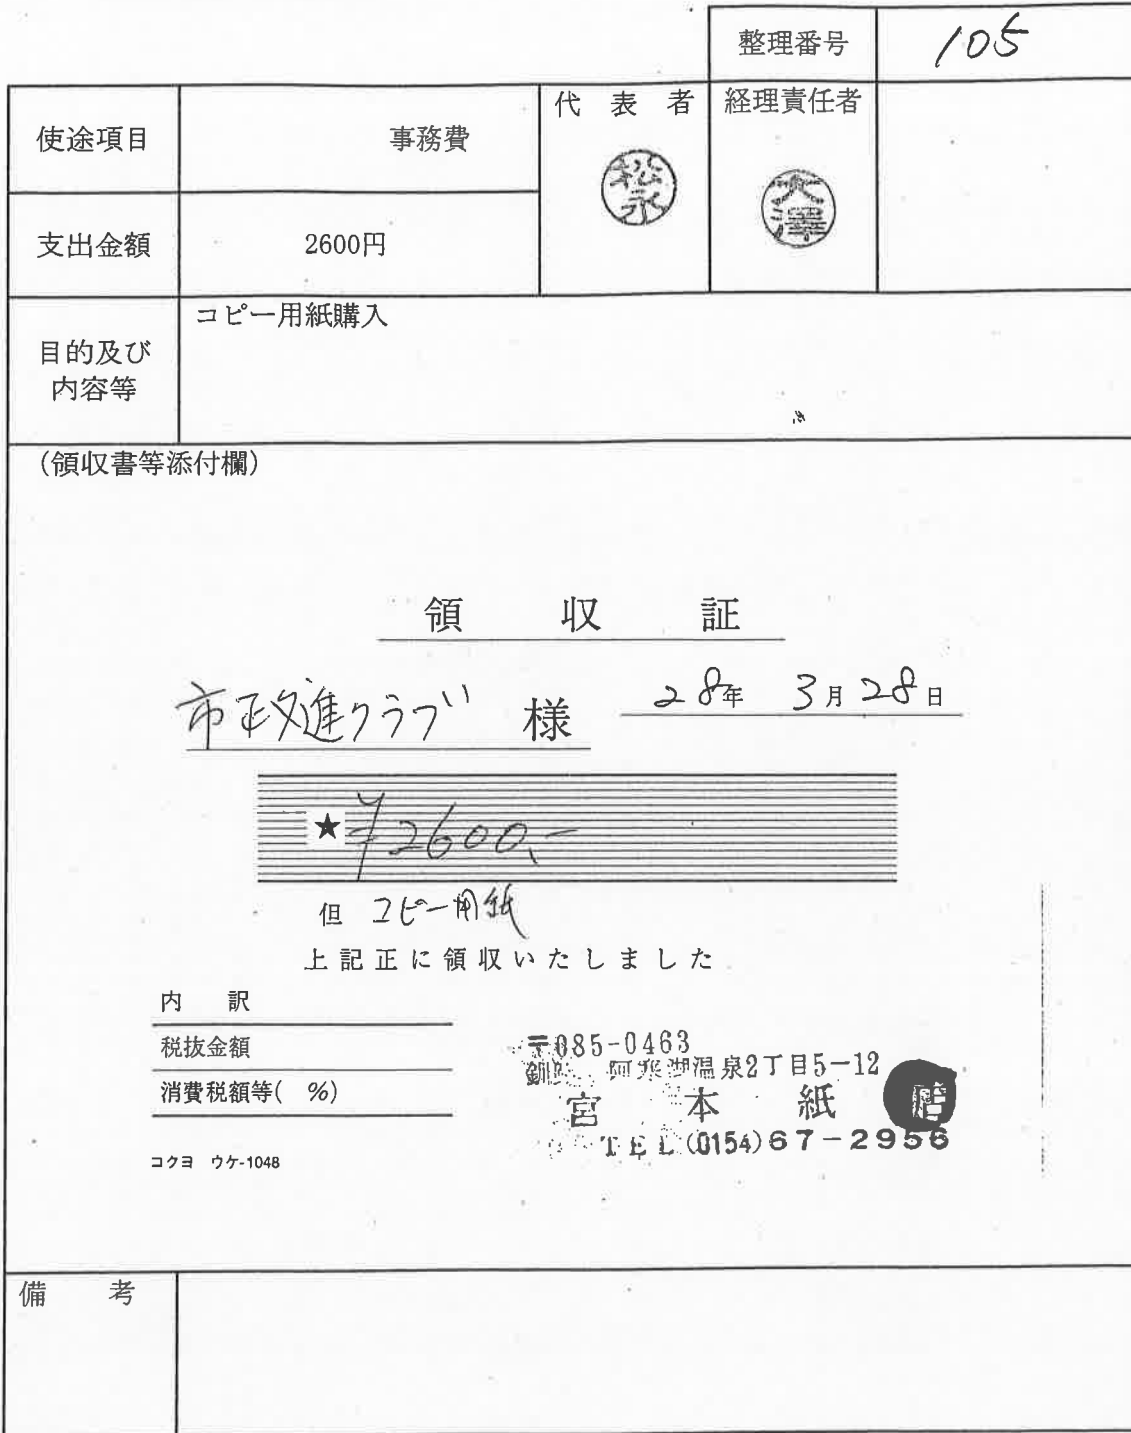 整理番号 105
使途項目 事務費 代表者 経理責任者
松永 大澤
支出金額 2600円
目的及び内容等 コピー用紙購入
(領収書等添付欄)
領収証
市政改進クラブ 様 28年 3月28日
★ ¥2600.-
但 コピー用紙
上記正に領収いたしました
内 訳
税抜金額
消費税額等( %)
コクヨ ウケ-1048
〒085-0463
釧 阿寒湖温泉2丁目5-12
宮本紙
TEL(0154)67-2956
備考